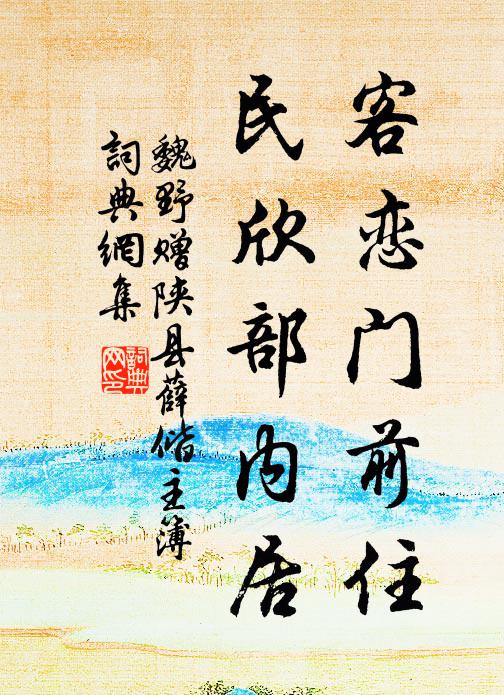 客恋门前住
民欣部内居
魏野赠陕县薛偕主簿
詞典網集
詞典
网印